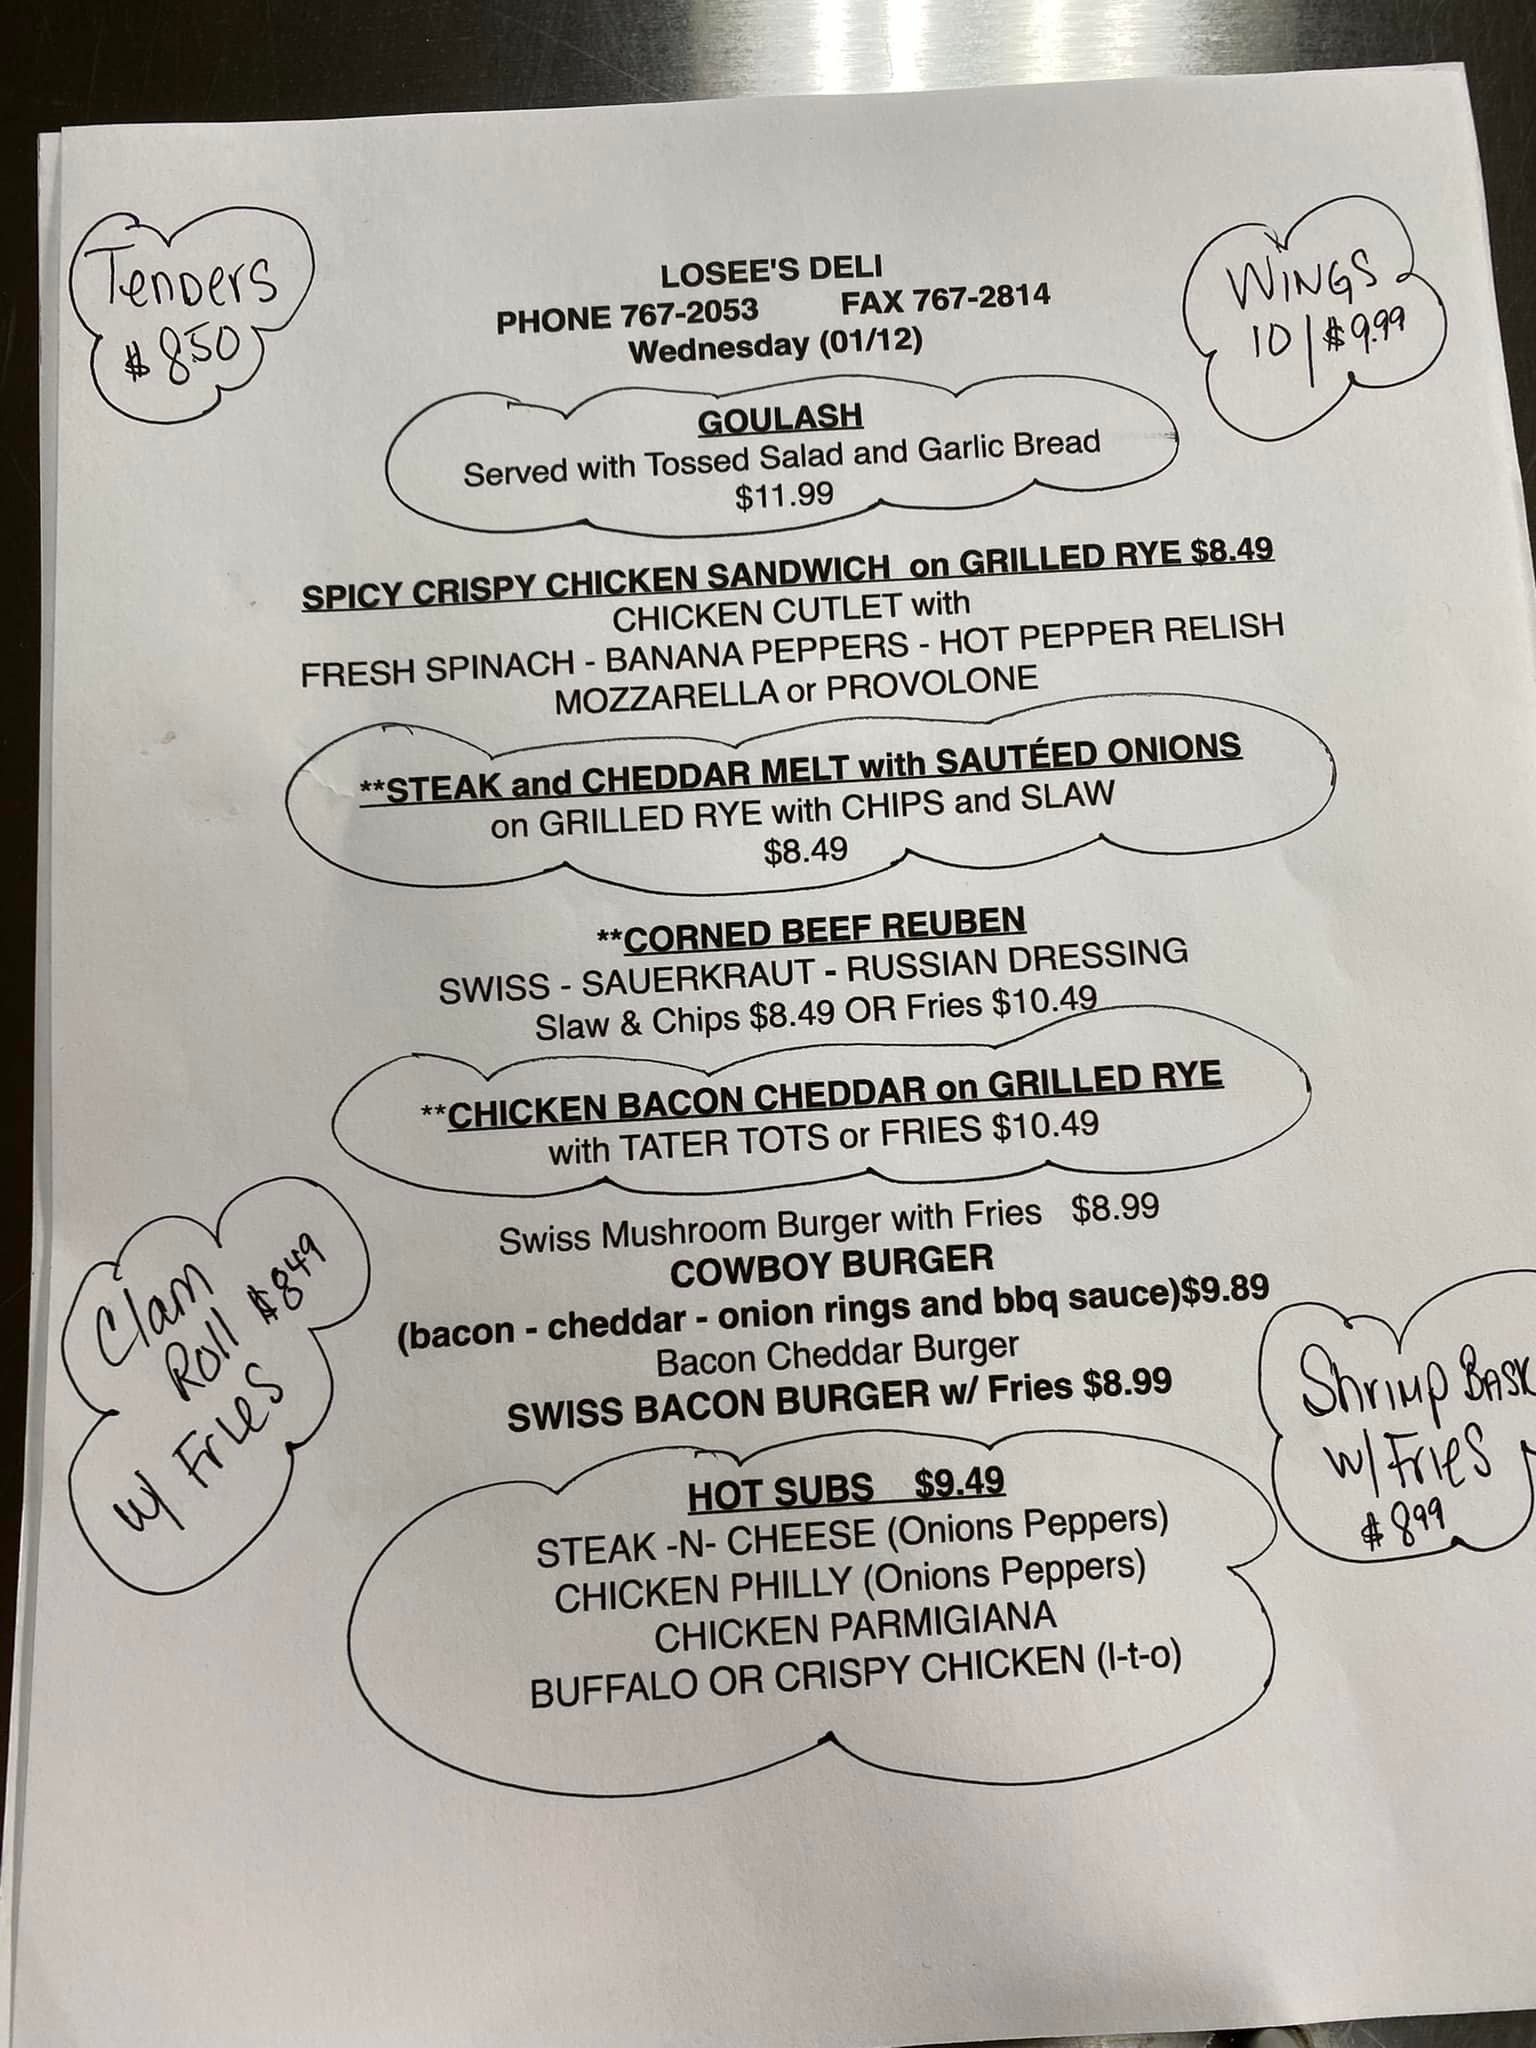 Tenders
$8.50
WINGS
10/$9.99
LOSEE'S DELI
PHONE 767-2053 FAX 767-2814
Wednesday (01/12)
GOULASH
Served with Tossed Salad and Garlic Bread
$11.99
SPICY CRISPY CHICKEN SANDWICH on GRILLED RYE $8.49
CHICKEN CUTLET with
FRESH SPINACH - BANANA PEPPERS - HOT PEPPER RELISH
MOZZARELLA or PROVOLONE
**STEAK and CHEDDAR MELT with SAUTÉED ONIONS
on GRILLED RYE with CHIPS and SLAW
$8.49
**CORNED BEEF REUBEN
SWISS - SAUERKRAUT - RUSSIAN DRESSING
Slaw & Chips $8.49 OR Fries $10.49
**CHICKEN BACON CHEDDAR on GRILLED RYE
with TATER TOTS or FRIES $10.49
Swiss Mushroom Burger with Fries $8.99
COWBOY BURGER
(bacon - cheddar - onion rings and bbq sauce)$9.89
Bacon Cheddar Burger
SWISS BACON BURGER w/ Fries $8.99
Clam
Roll $849
w/ Fries
Shrimp BASK
w/ Fries
$899
HOT SUBS $9.49
STEAK -N- CHEESE (Onions Peppers)
CHICKEN PHILLY (Onions Peppers)
CHICKEN PARMIGIANA
BUFFALO OR CRISPY CHICKEN (l-t-o)